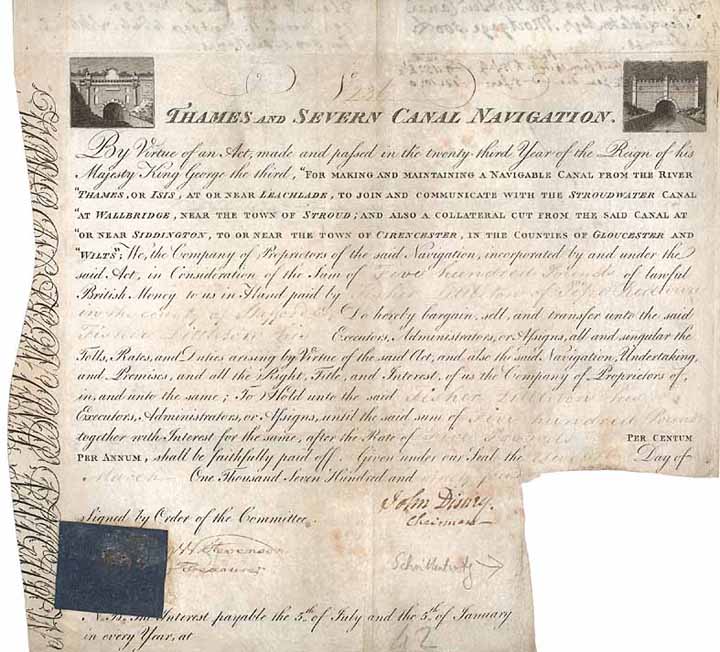 No. 236
THAMES AND SEVERN CANAL NAVIGATION.
By Virtue of an Act, made and passed in the twenty-third Year of the Reign of his
Majesty King George the third, "FOR MAKING AND MAINTAINING A NAVIGABLE CANAL FROM THE RIVER
"THAMES, OR ISIS, AT OR NEAR LEACHLADE, TO JOIN AND COMMUNICATE WITH THE STROUDWATER CANAL
"AT WALLBRIDGE, NEAR THE TOWN OF STROUD; AND ALSO A COLLATERAL CUT FROM THE SAID CANAL AT
"OR NEAR SIDDINGTON, TO OR NEAR THE TOWN OF CIRENCESTER, IN THE COUNTIES OF GLOUCESTER AND
"WILTS"; We, the Company of Proprietors of the said Navigation, incorporated by and under the
said Act, in Consideration of the Sum of Five hundred Pounds of lawful
British Money to us in Hand paid by Fisher Littleton of
in the county of Stafford Do hereby bargain, sell, and transfer unto the said
Fisher Littleton his Executors, Administrators, or Assigns, all and singular the
Tolls, Rates, and Duties arising by Virtue of the said Act, and also the said Navigation, Undertaking,
and Premises, and all the Right, Title, and Interest, of us the Company of Proprietors of,
in, and unto the same; To Hold unto the said Fisher Littleton his
Executors, Administrators, or Assigns, until the said sum of Five hundred Pounds
together with Interest for the same, after the Rate of Five Pounds PER CENTUM
PER ANNUM, shall be faithfully paid off. Given under our Seal the Day of
March One Thousand Seven Hundred and ninety
Signed by Order of the Committee.
John Disney.
Chairman
Stevenson
Treasurer
N.B. The Interest payable the 5th of July and the 5th of January
in every Year, at
62